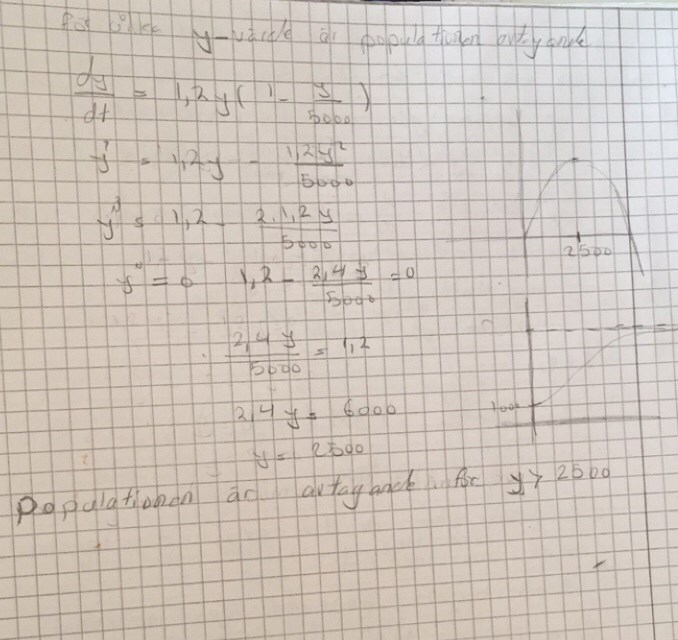 För vilka y-värde är populationen avtagande
dy/dt = 1,2y( 1 - y/5000 )
y' = 1,2y - 1,2y²/5000
y'' = 1,2 - 2.1,2y/5000
y'' = 0 1,2 - 2,4y/5000 = 0
2,4y/5000 = 1,2
2,4y = 6000
y = 2500
Populationen är avtagande för y > 2500
2500
1000